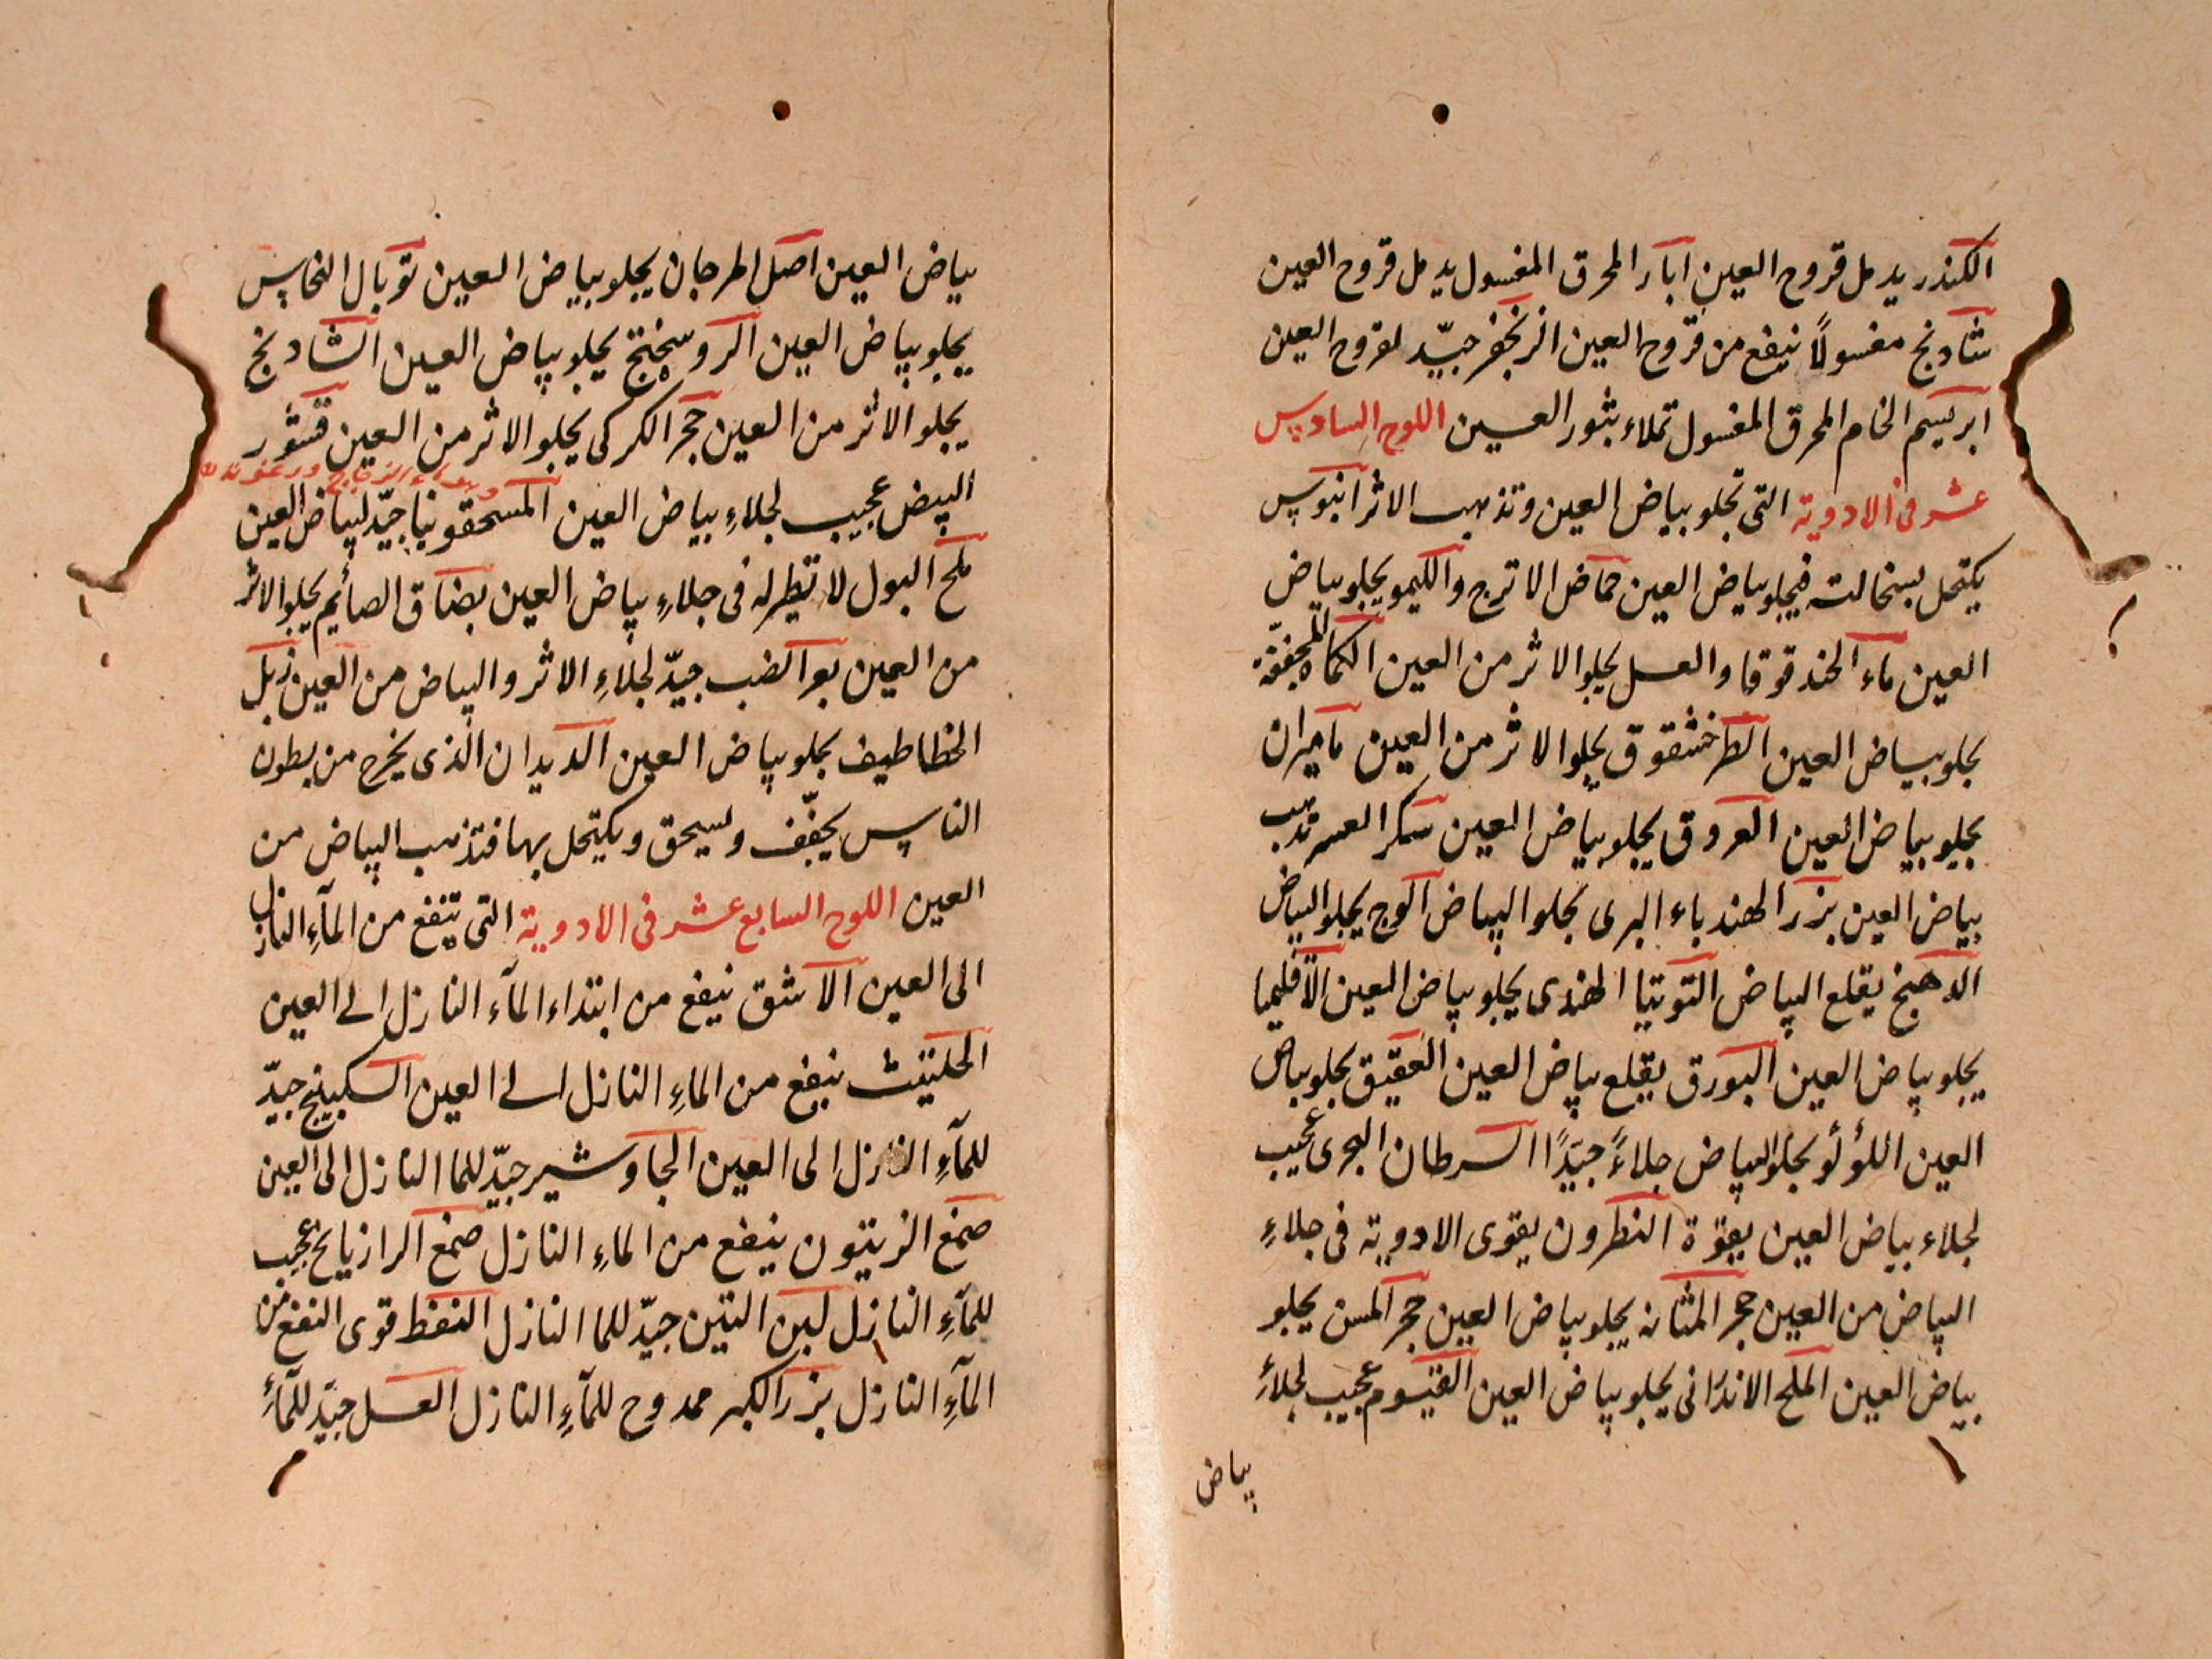 الكندر يدمل قروح العين ابار المحرق المغسول يدمل قروح العين
شادنج مغسولًا ينفع من قروح العين الزنجفر جيّد لقروح العين
ابريسم الخام المحرق المغسول تملاء بثور العين اللوح السادس
عشر فى الادوية التى تجلو بياض العين وتذهب الاثر ابنوس
يكتحل بسخالته فيجلو بياض العين حماض الاترج والليمو يجلو بياض
العين ماء الحندقوقا والعسل يجلو الاثر من العين الكماة المجففة
يجلو بياض العين الطرخشقوق يجلو الاثر من العين ماميران
يجلو بياض العين العروق يجلو بياض العين سكر العشر تذهب
بياض العين بزر الهندباء البرى تجلوا البياض الوج يجلو البياض
الدهنج يقلع البياض التوتيا الهندى يجلو بياض العين الاقليميا
يجلو بياض العين البورق يقلع بياض العين العقيق يجلو بياض
العين اللؤلؤ يجلو البياض جلاءً جيّدًا السرطان البحرى عجيب
لجلاء بياض العين بقوّة النطرون يقوى الادوية فى جلاءِ
البياض من العين حجر المثانه يجلو بياض العين حجر المسن يجلو
بياض العين الملح الاندرانى يجلو بياض العين القيسوم عجيب لجلاءِ
بياض
بياض العين اصل المرجان يجلو بياض العين توبال النحاس
يجلو بياض العين الروسختج يجلو بياض العين الشادنج
يجلو الاثر من العين حجر الكركى يجلو الاثر من العين قشور
البيض عجيب لجلاءِ بياض العين المسحقونيا جيّد لبياض العين
ملح البول لا نظير له فى جلاءِ بياض العين بصاق الصائم يجلو الاثر
من العين بعر الضب جيّد لجلاءِ الاثر والبياض من العين زبل
الخطاطيف يجلو بياض العين الديدان الذى يخرج من بطون
الناس يجفّف ويسحق ويكتحل بها فتذهب البياض من
العين اللوح السابع عشر فى الادوية التى ينفع من المآءِ النازل
الى العين الاشق ينفع من ابتداء المآء النازل الى العين
الحلتيت ينفع من الماءِ النازل الى العين السكبينج جيّد
للمآءِ النازل الى العين الجاوشير جيّد للما النازل الى العين
صمغ الزيتون ينفع من الماءِ النازل صمغ الرازيانج عجيب
للمآءِ النازل لبن التين جيّد للما النازل النفط قوى النفع من
المآءِ النازل بزر الكبر ممدوح للمآءِ النازل العسل جيّد للمآءِ